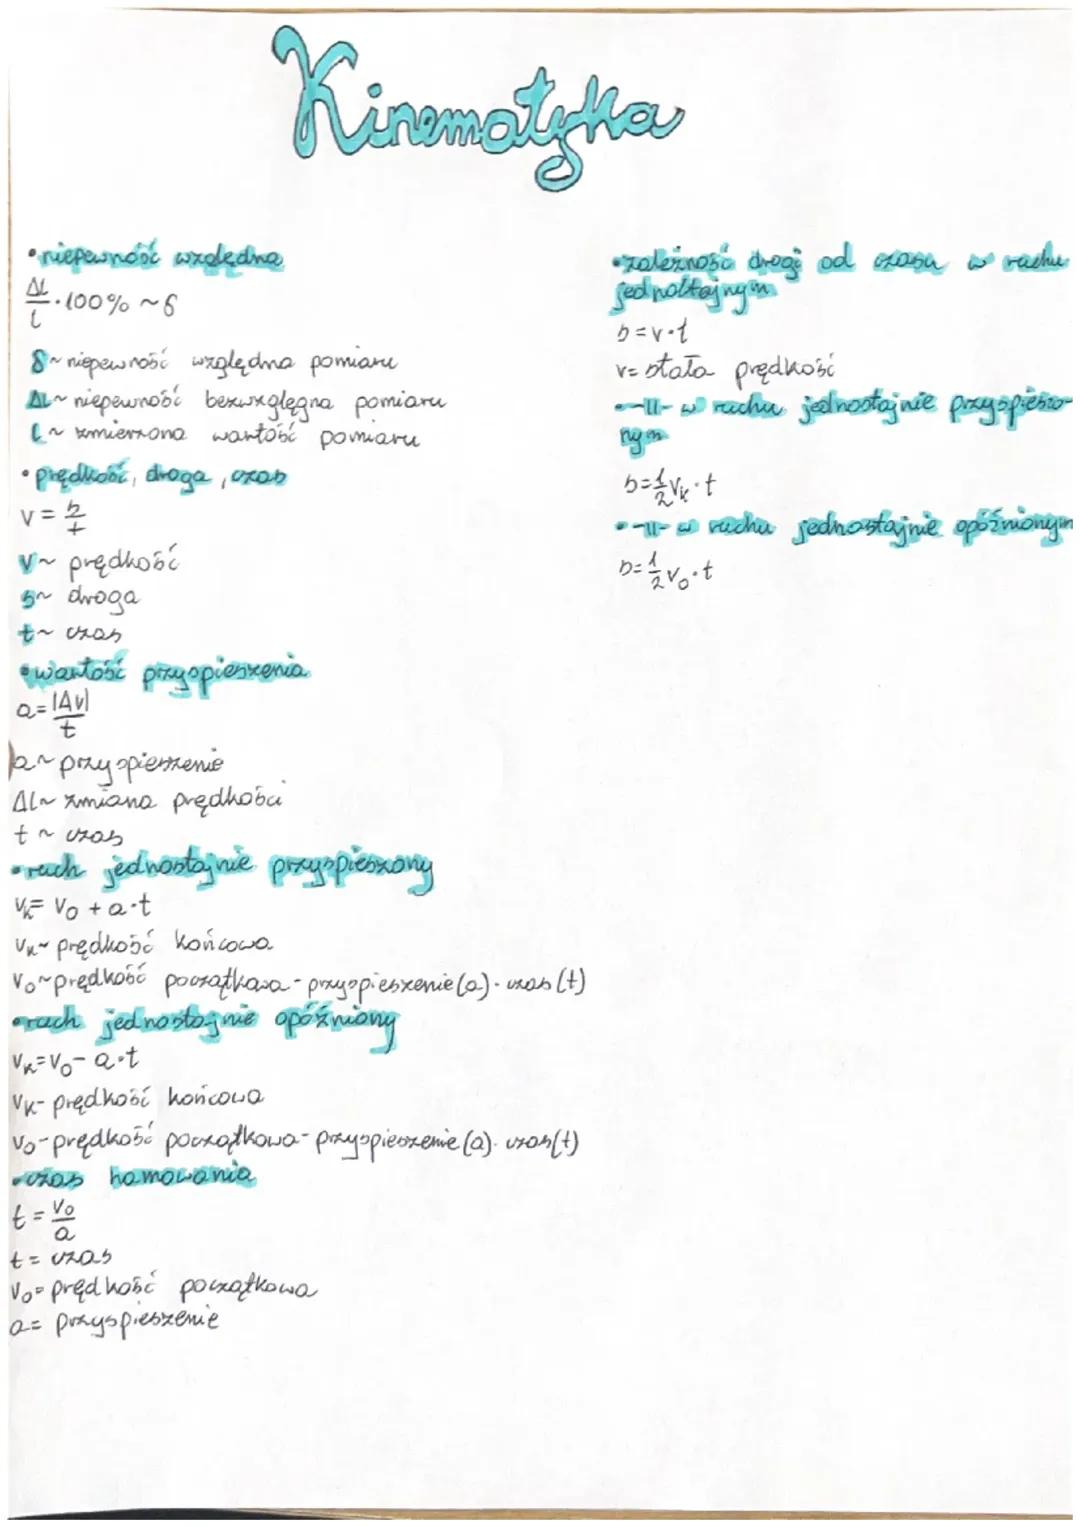 Kinematyka
• niepewność względna
ΔL/l · 100% ~ δ
δ ~ niepewność względna pomiaru
ΔL ~ niepewność bezwzglęgna pomiaru
l ~ zmierzona wartość pomiaru
• prędkość, droga, czas
v = s/t
v ~ prędkość
s ~ droga
t ~ czas
• wartość przyspieszenia
a = |Δv|/t
a ~ przyspieszenie
ΔL ~ zmiana prędkości
t ~ czas
• ruch jednostajnie przyspieszony
vk = v₀ + a·t
vk ~ prędkość końcowa
v₀ ~ prędkość początkowa - przyspieszenie (a) · czas (t)
• ruch jednostajnie opóźniony
vk = v₀ - a·t
vk - prędkość końcowa
v₀ - prędkość początkowa - przyspieszenie (a) · czas (t)
• czas hamowania
t = v₀/a
t = czas
v₀ = prędkość początkowa
a = przyspieszenie
• zależność drogi od czasu w ruchu
jednostajnym
s = v·t
v = stała prędkość
• -11- w ruchu jednostajnie przyspieszo-
nym
s = 1/2 vk · t
• -11- w ruchu jednostajnie opóźnionym
s = 1/2 v₀ · t